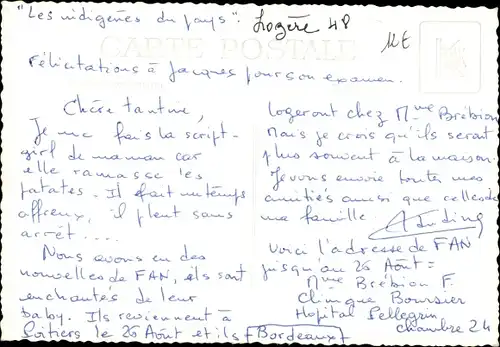 "Les indigènes du pays". Lozère 48
12E
CARTE POSTALE
Félicitations à Jacques pour son examen.
Chère tantine,
Je me fais la script-
girl de maman car
elle ramasse les
patates. Il fait un temps
affreux, il pleut sans
arrêt....
Nous avons eu des
nouvelles de FAN, ils sont
enchantés de leur
baby. Ils reviennent à
Poitiers le 26 Août et ils
logeront chez Mme Brébion
Mais je crois qu'ils seront
plus souvent à la maison.
Je vous envoie toutes mes
amitiés ainsi que celles de
ma famille.
Voici l'adresse de FAN
jusqu'au 26 Août =
Mme Brébion F.
Clinique Boursier
Hôpital Pellegrin
chambre 24
Bordeaux